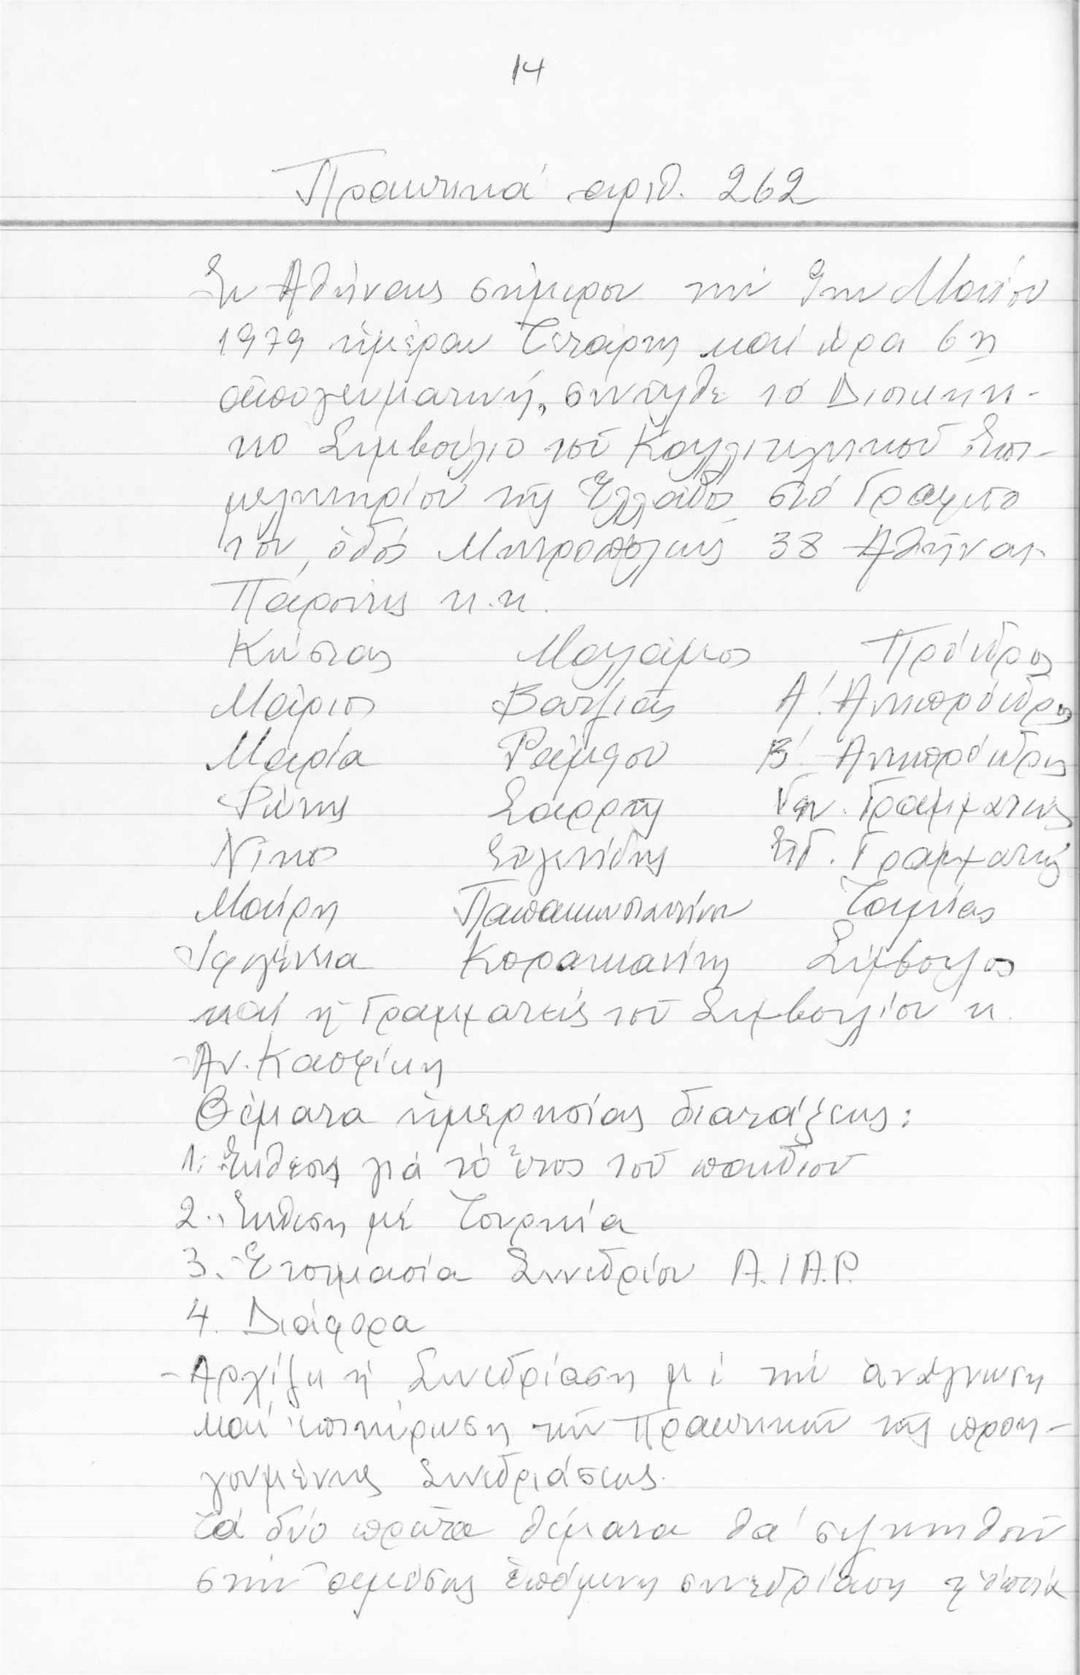 14
Πρακτικά αριθ. 262
Ἐν Ἀθήναις σήμερον τήν 9ην Μαΐου
1979 ἡμέραν Τετάρτη καί ὥρα 6η
ἀπογευματινή, συνῆλθε τό Διοικητι-
κό Συμβούλιο τοῦ Καλλιτεχνικοῦ Ἐπι-
μελητηρίου τῆς Ἑλλάδος στό Γραφεῖο
του, ὁδός Μητροπόλεως 38 Ἀθῆναι
Παρόντες κ.κ.
Κώστας Μαλάμος Πρόεδρος
Μάριος Βατζιᾶς Α'. Ἀντιπρόεδρος
Μαρία Ράμφου Β' Ἀντιπρόεδρος
Φώτης Σαρρῆς Γεν. Γραμματεύς
Νίκος Εὐγενίδης Εἰδ. Γραμματεύς
Μαίρη Παπακωνσταντίνου Ταμίας
Ἰφιγένεια Καρακιανίτη Σύμβουλος
καί ἡ Γραμματεύς τοῦ Συμβουλίου κ.
Ἀν. Κασφίκη
Θέματα ἡμερησίας διατάξεως:
1. Ἔκθεσις γιά τό Ἔτος τοῦ παιδιοῦ
2. Ἔκθεση μέ Τουρκία
3. Ἑτοιμασία Συνεδρίου A.I.A.P.
4. Διάφορα
Ἀρχίζει ἡ Συνεδρίαση μέ τήν ἀνάγνωση
καί ἐπικύρωση τῶν Πρακτικῶν τῆς προη-
γουμένης Συνεδριάσεως.
Τά δύο πρῶτα θέματα θά συζητηθοῦν
στήν ἀμέσως ἑπόμενη συνεδρίαση ἡ ὁποία